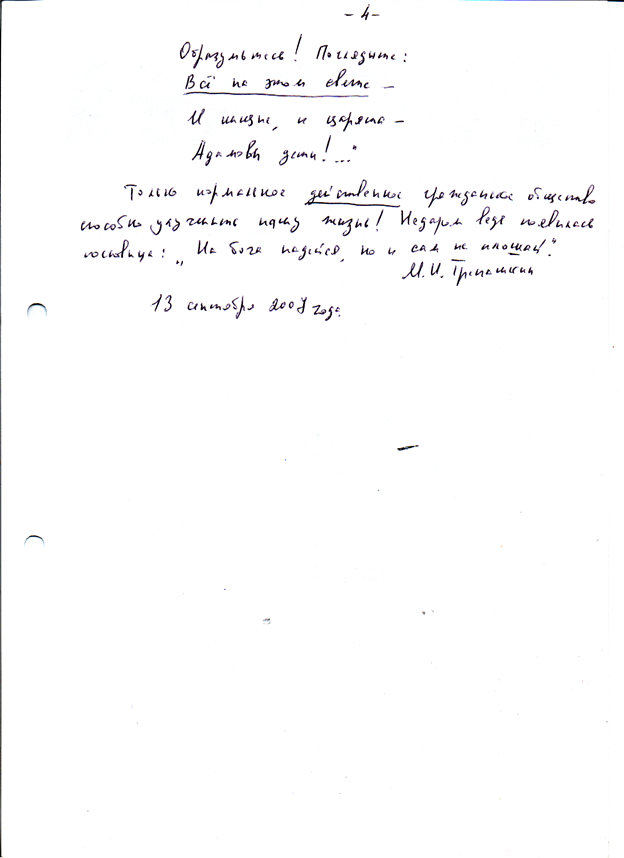 - 4 -
Образумьтесь! Поглядите:
Всё на этом свете –
И нищие, и царята –
Адамовы дети!..."
Только нормальное действенное гражданское общество
способно улучшить нашу жизнь! Недаром ведь появилась
пословица: „На бога надейся, но и сам не плошай!"
М.И. Трепашкин
13 сентября 2007 года.